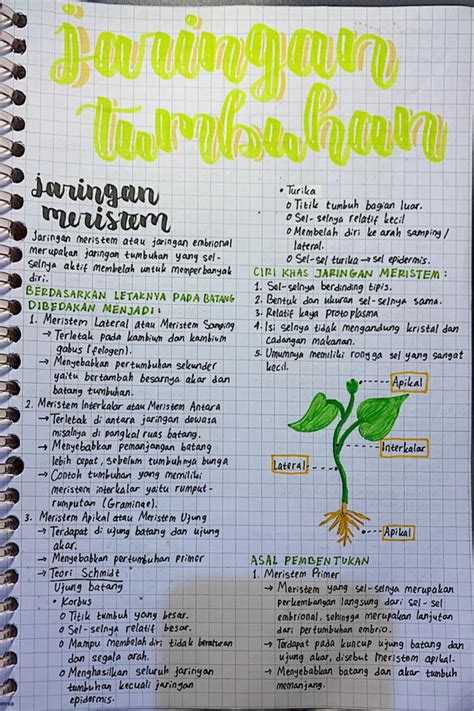 jaringan
tumbuhan
jaringan
meristem
Jaringan meristem atau jaringan embrional
merupakan jaringan tumbuhan yang sel-
selnya aktif membelah untuk memperbanyak
diri.
BERDASARKAN LETAKNYA PADA BATANG
DIBEDAKAN MENJADI :
1. Meristem Lateral atau Meristem Samping
→ Terletak pada kambium dan kambium
gabus (felogen).
→ Menyebabkan pertumbuhan sekunder
yaitu bertambah besarnya akar dan
batang tumbuhan.
2. Meristem Interkalar atau Meristem Antara
→ Terletak di antara jaringan dewasa
misalnya di pangkal ruas batang.
→ Menyebabkan pemanjangan batang
lebih cepat, sebelum tumbuhnya bunga
→ Contoh tumbuhan yang memiliki
meristem interkalar yaitu rumput-
rumputan (Graminae).
3. Meristem Apikal atau Meristem Ujung
→ Terdapat di ujung batang dan ujung
akar.
→ Menyebabkan pertumbuhan primer
→ Teori Schmidt
Ujung batang
• Korpus
o Titik tumbuh yang besar.
o Sel-selnya relatif besar.
o Mampu membelah diri tidak beraturan
dan segala arah.
o Menghasilkan seluruh jaringan
tumbuhan kecuali jaringan
epidermis.
• Turika
o Titik tumbuh bagian luar.
o Sel-selnya relatif kecil
o Membelah diri ke arah samping /
lateral.
o Sel-sel turika → sel epidermis.
CIRI KHAS JARINGAN MERISTEM :
1. Sel-selnya berdinding tipis.
2. Bentuk dan ukuran sel-selnya sama.
3. Relatif kaya protoplasma
4. Isi selnya tidak mengandung kristal dan
cadangan makanan.
5. Umumnya memiliki rongga sel yang sangat
kecil.
Apikal
Interkalar
Lateral
Apikal
ASAL PEMBENTUKAN
1. Meristem Primer
→ Meristem yang sel-selnya merupakan
perkembangan langsung dari sel-sel
embrional, sehingga merupakan lanjutan
dari pertumbuhan embrio.
→ Terdapat pada kuncup ujung batang dan
ujung akar, disebut meristem apikal.
→ Menyebabkan batang dan akar tumbuh
memanjang.